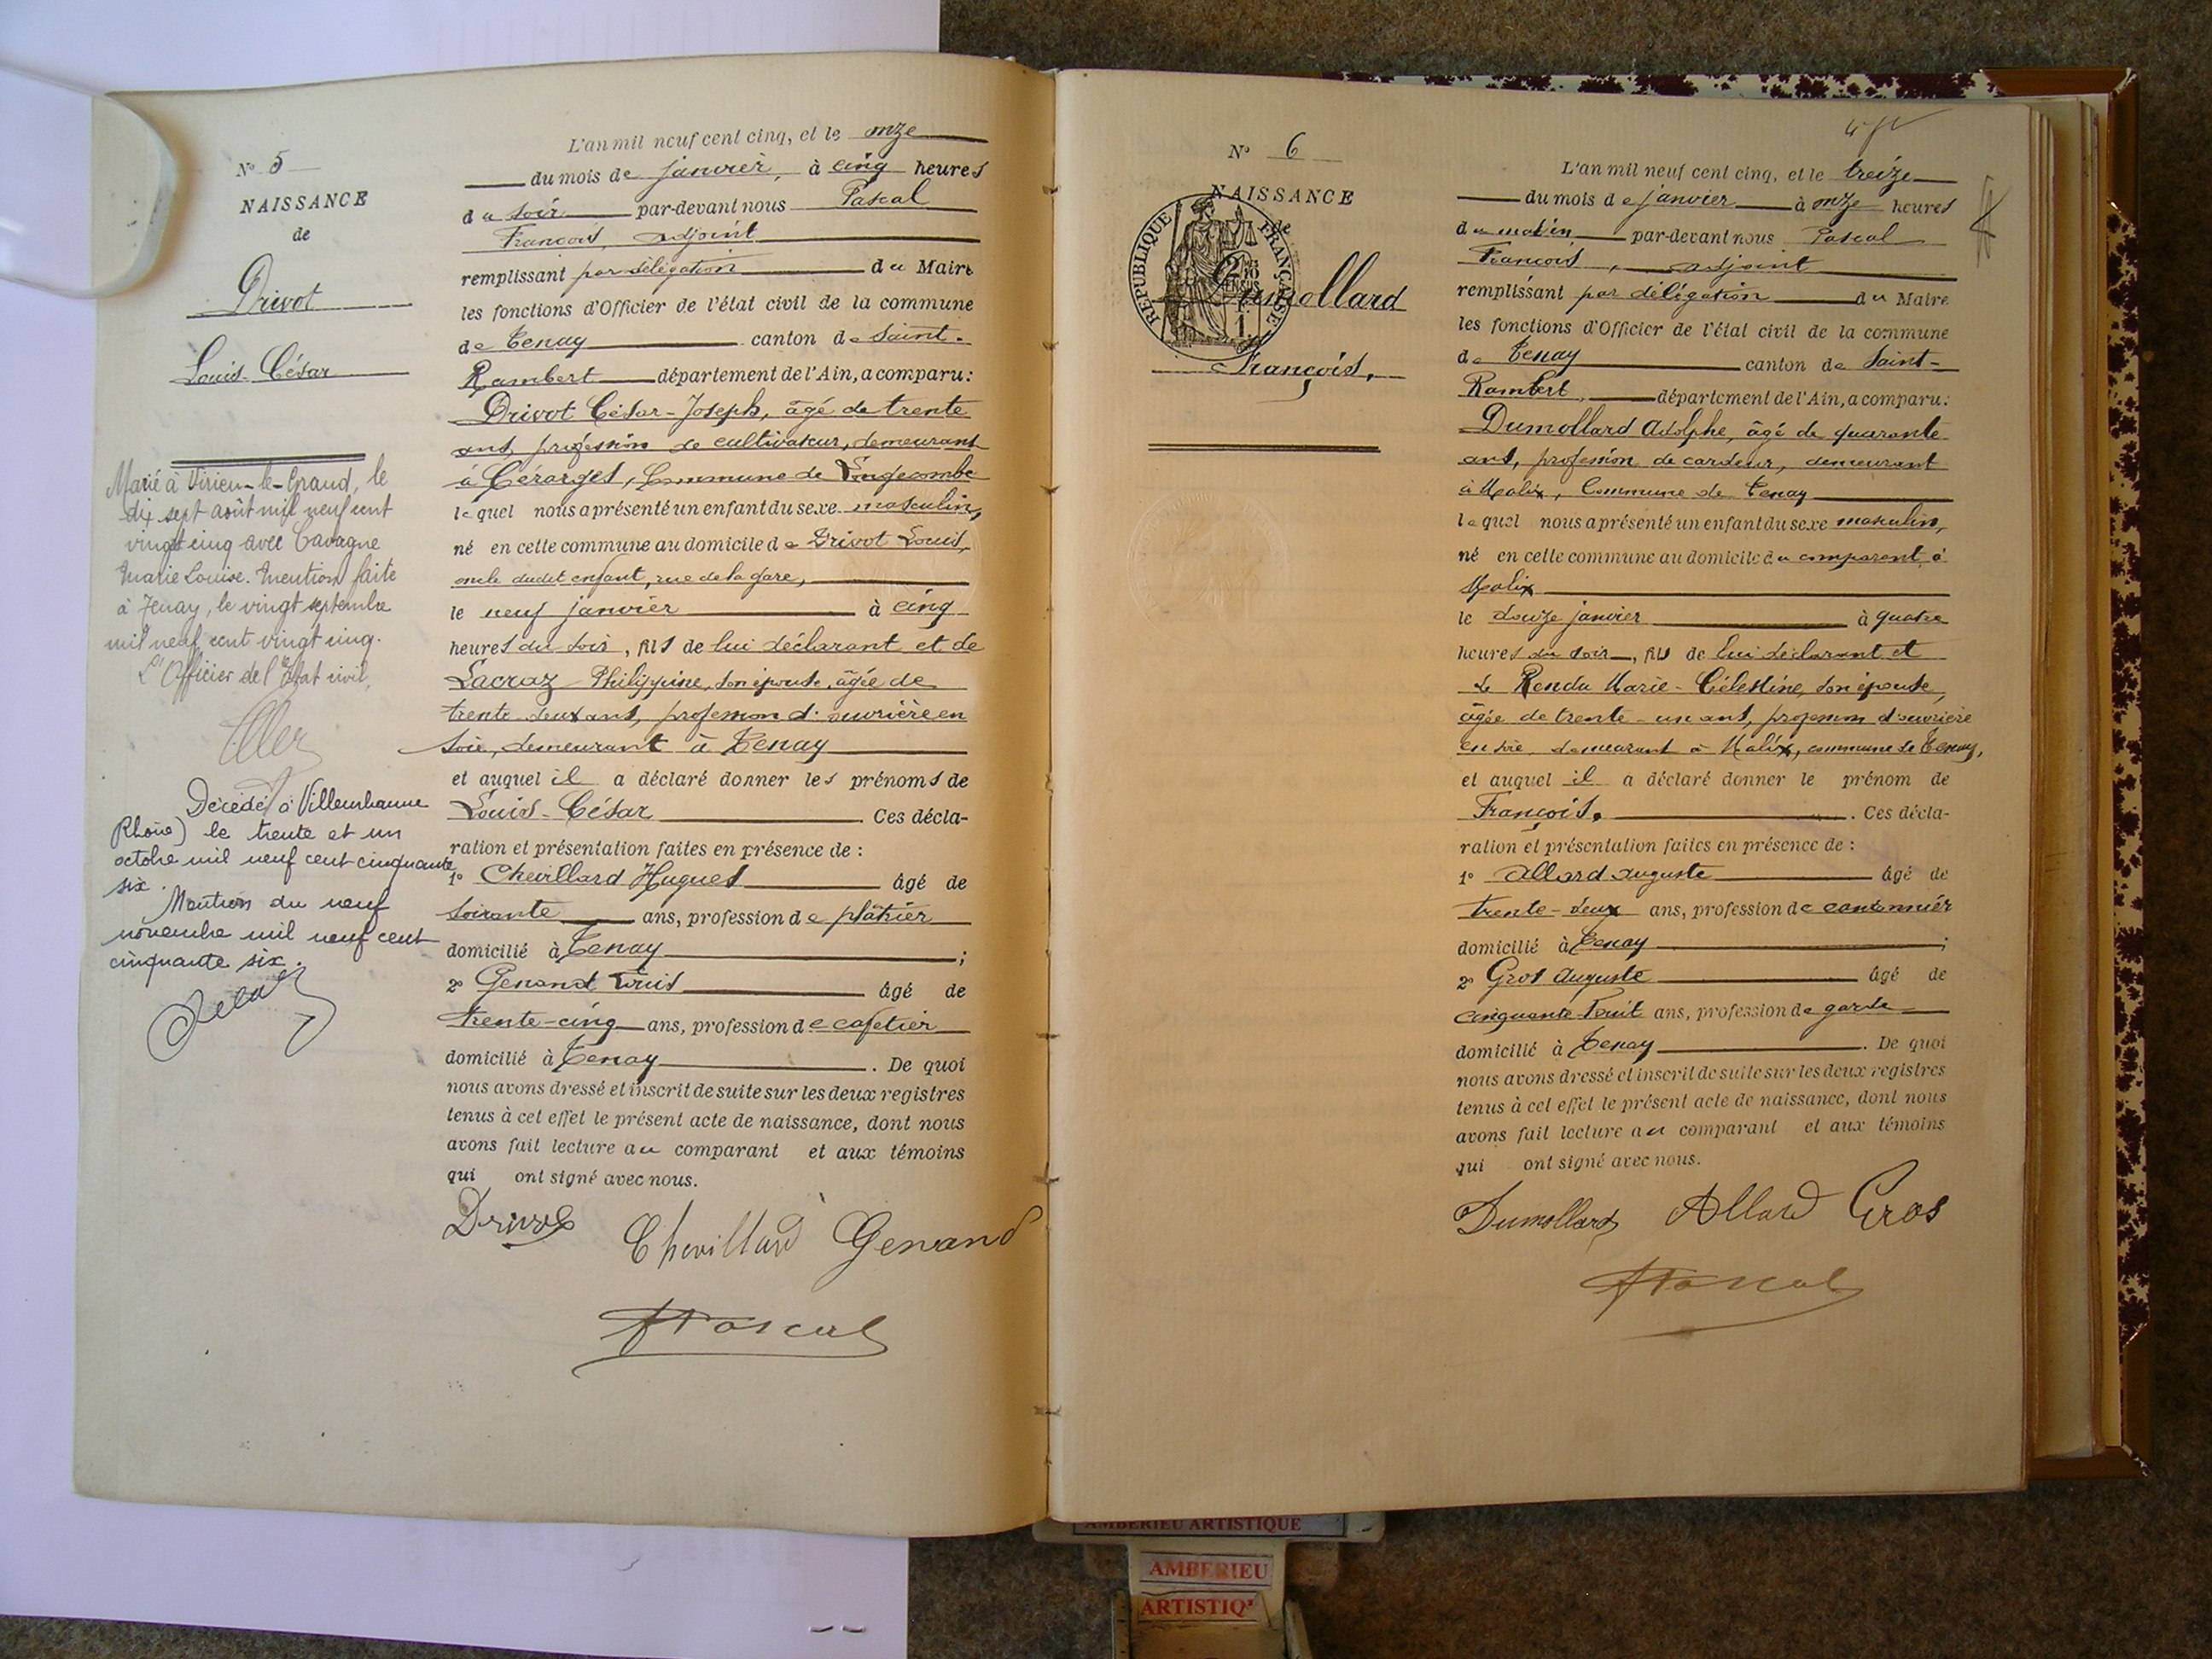 N° 5
NAISSANCE
de
Drivot
Louis-César
Marié à Virieu-le-Grand, le
dix sept août mil neuf cent
vingt cinq avec Cavagne
Marie Louise. Mention faite
à Tenay, le vingt septembre
mil neuf cent vingt cinq.
L'Officier de l'Etat civil,
Décédé à Villeurbanne
Rhône) le trente et un
octobre mil neuf cent cinquante
six.
Mention du neuf
novembre mil neuf cent
cinquante six.
L'an mil neuf cent cinq, et le onze
du mois de janvier, à cinq heures
du soir par-devant nous Pascal
François, adjoint
remplissant par délégation du Maire
les fonctions d'Officier de l'état civil de la commune
de Tenay canton de Saint-
Rambert département de l'Ain, a comparu:
Drivot César-Joseph, âgé de trente
ans, profession de cultivateur, demeurant
à Commune de
lequel nous a présenté un enfant du sexe masculin,
né en cette commune au domicile de Drivot Louis,
oncle dudit enfant, rue de la gare,
le neuf janvier à cinq
heures du soir, fils de lui déclarant et de
Lacraz Philippine, son épouse, âgée de
trente deux ans, profession d'ouvrière en
soie, demeurant à Tenay
et auquel il a déclaré donner les prénoms de
Louis-César Ces décla-
ration et présentation faites en présence de :
1° Chevillard Hugues âgé de
soixante ans, profession de plâtrier
domicilié à Tenay ;
2° Genand Louis âgé de
trente-cinq ans, profession de cafetier
domicilié à Tenay . De quoi
nous avons dressé et inscrit de suite sur les deux registres
tenus à cet effet le présent acte de naissance, dont nous
avons fait lecture au comparant et aux témoins
qui ont signé avec nous.
Drivot Chevillard Genand
FPascal
N° 6
NAISSANCE
de
REPUBLIQUE FRANÇAISE
Dumollard
François,
L'an mil neuf cent cinq, et le treize
du mois de janvier à onze heures
du matin par-devant nous Pascal
François, adjoint
remplissant par délégation du Maire
les fonctions d'Officier de l'état civil de la commune
de Tenay canton de Saint-
Rambert, département de l'Ain, a comparu:
Dumollard Adolphe, âgé de quarante
ans, profession de cardeur, demeurant
à Malix, Commune de Tenay
lequel nous a présenté un enfant du sexe masculin,
né en cette commune au domicile du comparant à
Malix
le douze janvier à quatre
heures du soir, fils de lui déclarant et
de Rendu Marie-Célestine, son épouse,
âgée de trente-un ans, profession d'ouvrière
en soie, demeurant à Malix, commune de Tenay,
et auquel il a déclaré donner le prénom de
François. . Ces décla-
ration et présentation faites en présence de :
1° Allard Auguste âgé de
trente-deux ans, profession de cantonnier
domicilié à Tenay ;
2° Gros Auguste âgé de
cinquante huit ans, profession de garde
domicilié à Tenay . De quoi
nous avons dressé et inscrit de suite sur les deux registres
tenus à cet effet le présent acte de naissance, dont nous
avons fait lecture au comparant et aux témoins
qui ont signé avec nous.
Dumollard Allard Gros
FPascal
AMBERIEU ARTISTIQUE
AMBERIEU
ARTISTIQ